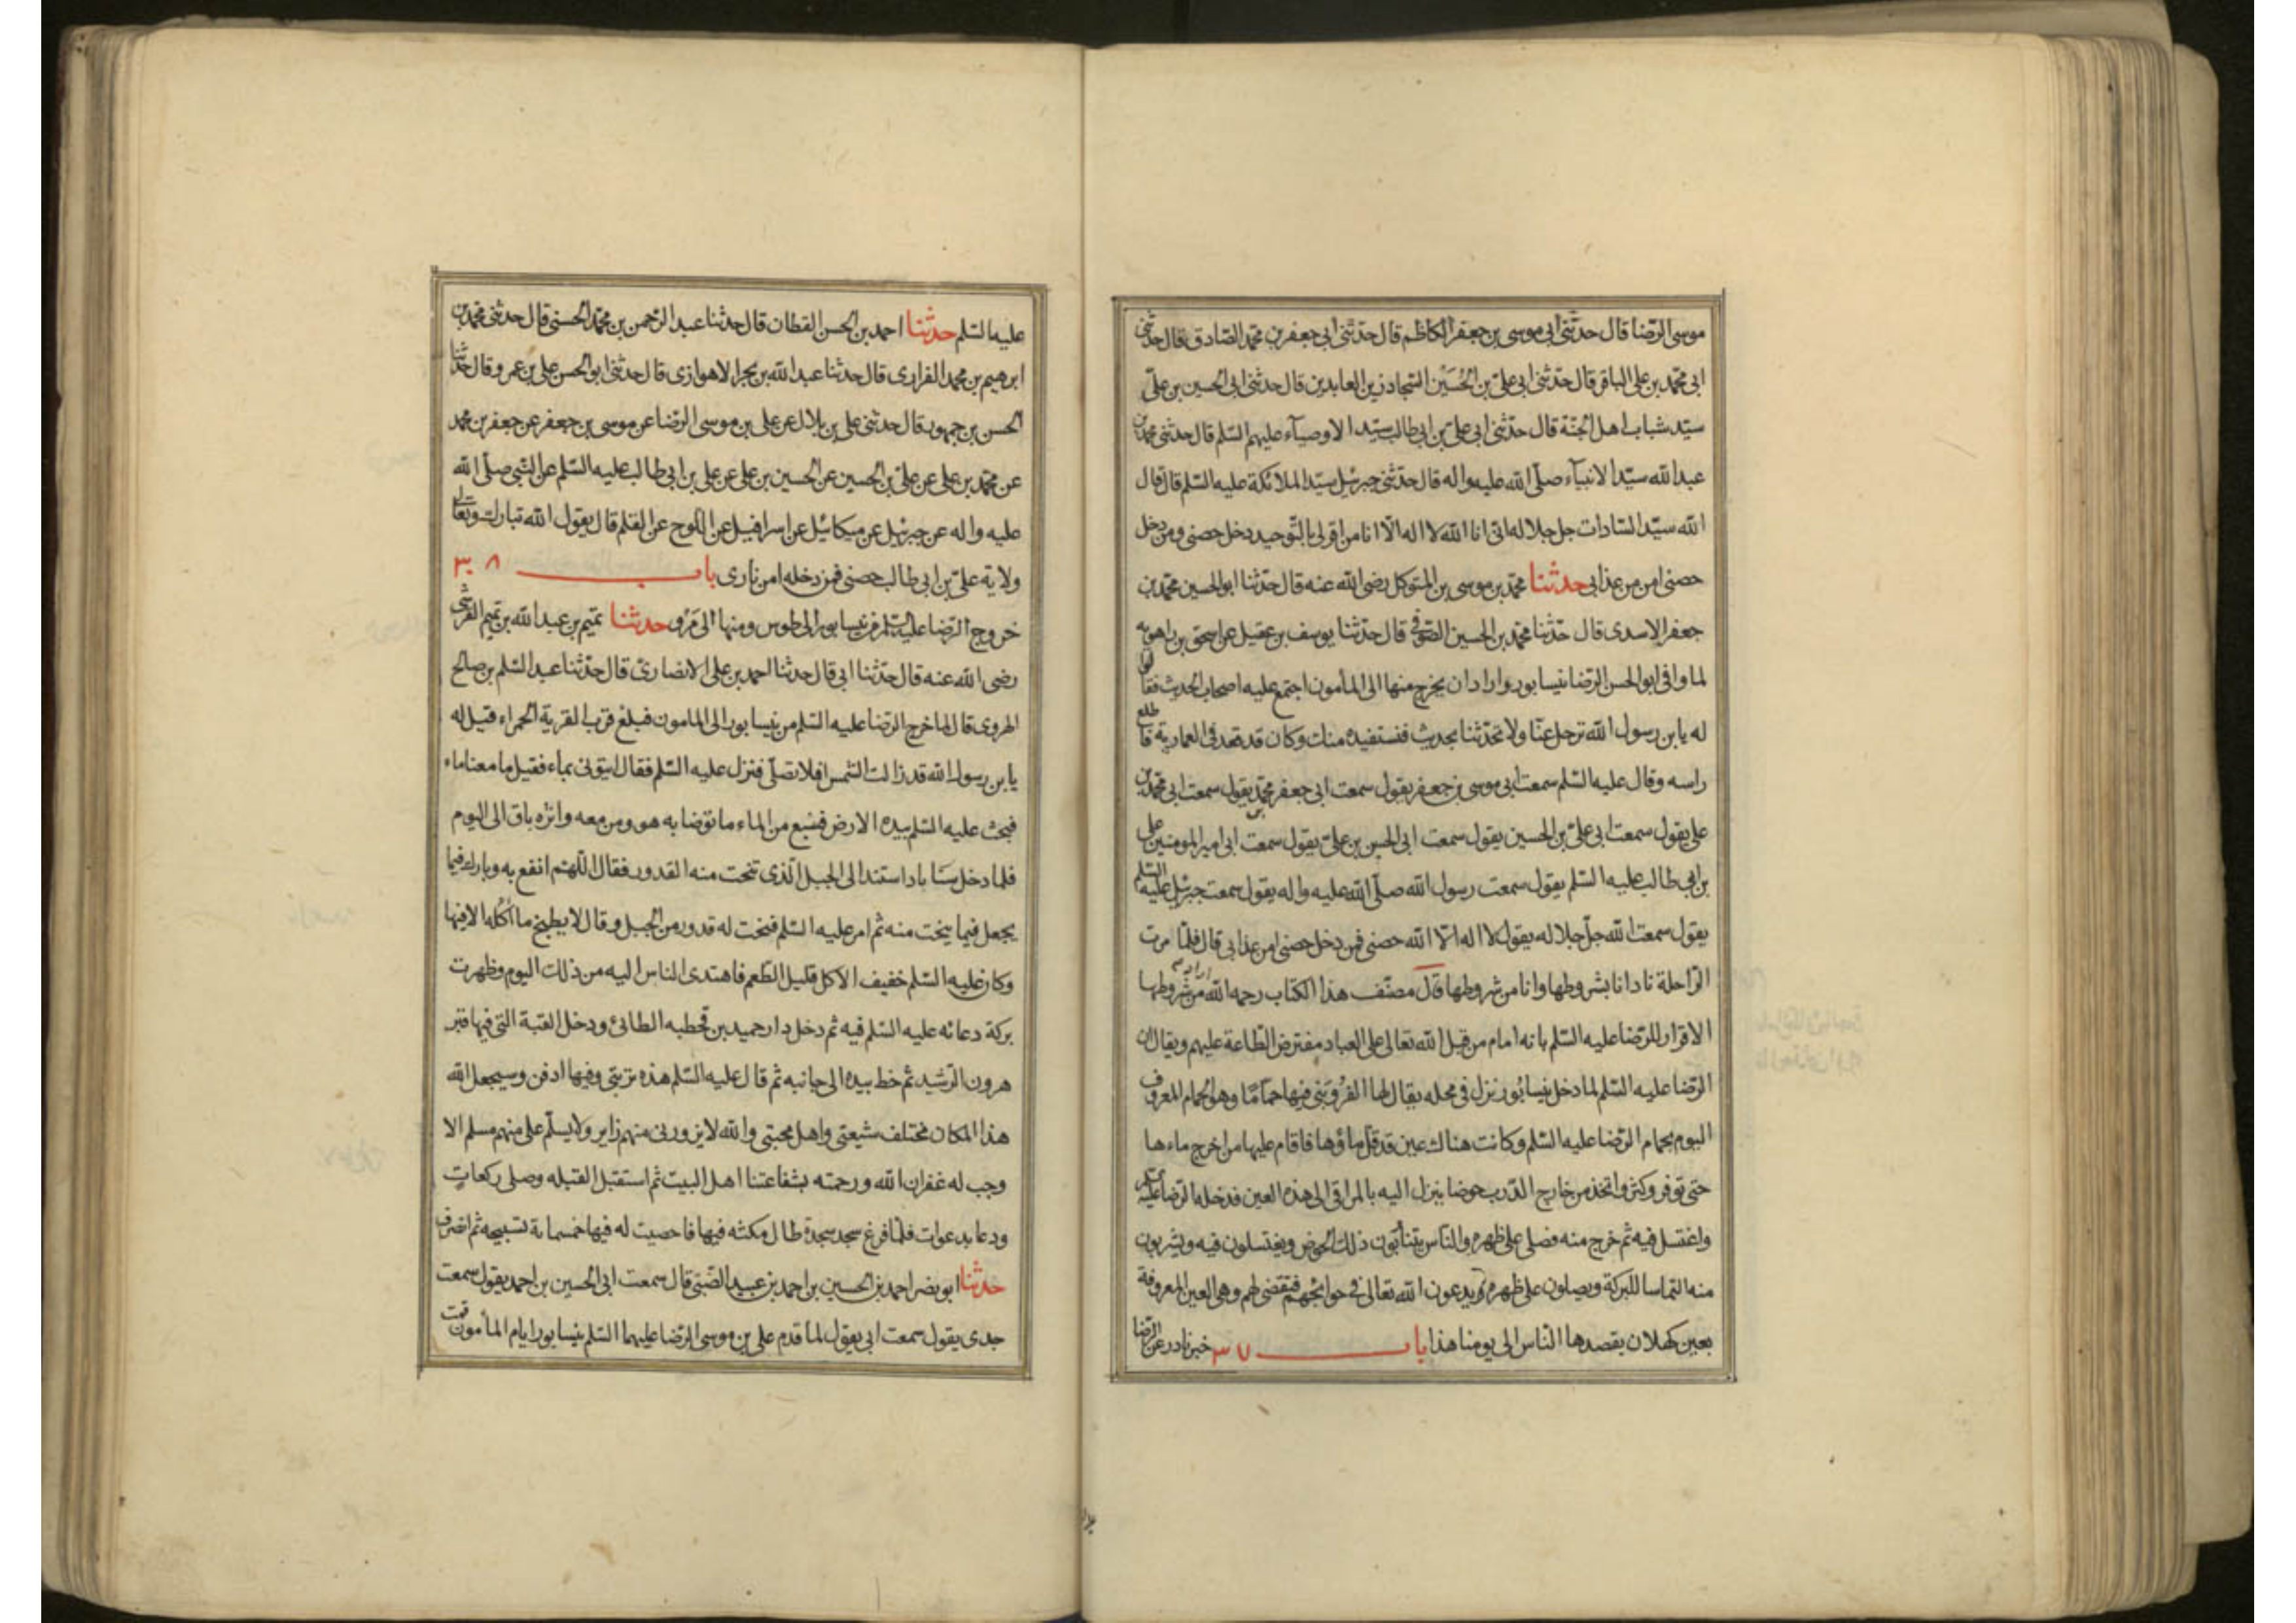 موسى الرّضا قال حدّثنى ابى موسى بن جعفر الكاظم قال حدّثنى ابى جعفر بن محمّد الصّادق قال حدّثنى
ابى محمّد بن على الباقر قال حدّثنى ابى علىّ بن الحُسَيْن السّجاد زين العابدين قال حدثنى ابى الحسين بن علىّ
سيّد شباب اهل الجنّة قال حدّثنى ابى علىّ بن ابى طالب سيّد الاوصيآء عليهم السّلم قال حدثنى محمّد بن
عبد الله سيّد الانبيآء صلّى الله عليه واله قال حدّثنى جبرئيل سيّد الملائكة عليه السّلم قال قال
الله سيّد السّادات جل جلاله انّى انا الله لا اله الّا انا من اقر لى بالتّوحيد دخل حصنى ومن دخل
حصنى امن من عذابى حدثنا محمّد بن موسى بن المتوكل رضى الله عنه قال حدّثنا ابو الحسين محمّد بن
جعفر الاسدى قال حدّثنا محمّد بن الحسين الصّوفى قال حدّثنا يوسف بن عقيل عن اسحق بن راهويه
لما وافى ابو الحسن الرّضا نيسابور واراد ان يخرج منها الى المأمون اجتمع عليه اصحاب الحديث فقالوا
له يا بن رسول الله ترحل عنّا ولا تحدّثنا بحديث فنستفيده منك وكان قد قعد فى العمارية فاطلع
راسه وقال عليه السّلم سمعت ابى موسى بن جعفر يقول سمعت ابى جعفر بن محمّد يقول سمعت ابى محمّد بن
على يقول سمعت ابى علىّ بن الحسين يقول سمعت ابى الحسين بن علىّ يقول سمعت ابى امير المومنين على
بن ابى طالب عليه السّلم يقول سمعت رسول الله صلّى الله عليه واله يقول سمعت جبرئيل عليه السّلم
يقول سمعت الله جلّ جلاله يقول لا اله الّا الله حصنى فمن دخل حصنى امن عذابى قال فلمّا مرت
الرّاحلة نادانا بشروطها وانا من شروطها قال مصنّف هذا الكتاب رحمه الله من شروطها
الاقرار للرّضا عليه السّلم بانه امام من قبل الله تعالى على العباد مفترض الطّاعة عليهم ويقال ان
الرّضا عليه السّلم لما دخل نيسابُور نزل فى محله يقال لها الفروينى فيها حمامًا وهو الحمام المعروف
اليوم بحمام الرّضا عليه السّلم وكانت هناك عين قد قلّ ماؤها فاقام عليها من اخرج ماءها
حتى توفر وكثر واتخذ من خارج الدّرب حوضا ينزل اليه بالمراقى الى هذه العين فدخله الرّضا عليه السّلم
واغتسل فيه ثم خرج منه فصلى على ظهره والنّاس يتناوبون ذلك الحوض ويغتسلون فيه ويشربون
منه التماسا للبركة ويصلون على ظهره ويدعون الله تعالى فى حوائجهم فتقضى لهم وهى العين المعروفة
بعين كهلان يقصدها النّاس الى يومنا هذا باب ٣٧ خبر نادر عن الرّضا
عليه السّلم حدّثنا احمد بن الحسن القطان قال حدثنا عبد الرّحمن بن محمّد الحسنى قال حدثنى محمّد بن
ابرهيم بن محمد الفزارى قال حدثنا عبد الله بن بحر الاهوازى قال حدثنى ابو الحسن على بن عمرو قال حدّثنا
الحسن بن جمهور قال حدثنى على بن بلال عن على بن موسى الرّضا عن موسى بن جعفر عن جعفر بن محمد
عن محمّد بن على عن علىّ بن الحسين عن الحسين بن على عن على بن ابى طالب عليه السّلم عن النّبى صلّى الله
عليه واله عن جبرئيل عن ميكائيل عن اسرافيل عن اللوح عن القلم قال يقول الله تبارك وتعالى
ولاية علىّ بن ابى طالب حصنى فمن دخله امن نارى باب ٣٠٨
خروج الرّضا عليه السّلم من نيسابور الى طوس ومنها الى مَرْو حدثنا تميم بن عبد الله بن تميم القرشى
رضى الله عنه قال حدّثنا ابى قال حدثنا احمد بن على الانصارىّ قال حدّثنا عبد السّلم بن صالح
الهروى قال لما خرج الرّضا عليه السّلم من نيسابور الى المامون فبلغ قرب القرية الحمراء قيل له
يا بن رسول الله قد زالت الشّمس افلا تصلّى فنزل عليه السّلم فقال ايتونى بماء فقيل ما معنا ماء
فبحث عليه السّلم بيده الارض فنبع من الماء ما توضا به هو ومن معه واثره باق الى اليوم
فلما دخل سَنَاباد استند الى الجبل الّذى تنحت منه القدور فقال اللّهمّ انفع به وبارك فيما
يجعل فيما ينحت منه ثم امر عليه السّلم فنحت له قدور من الجبل وقال لا يطبخ ما اكُله الا فيها
وكان عليه السّلم خفيف الاكل قليل الطّعم فاهتدى الناس اليه من ذلك اليوم وظهرت
بركة دعائه عليه السّلم فيه ثم دخل دار حميد بن قحطبه الطائى ودخل القبة التى فيها قبر
هرون الرّشيد ثم خط بيده الى جانبه ثم قال عليه السّلم هذه تربتى وفيها ادفن وسيجعل الله
هذا المكان مختلف شيعتى واهل محبتى والله لا يزورنى منهم زاير ولا يسلّم على منهم مسلم الا
وجب له غفران الله ورحمته بشفاعتنا اهل البيت ثم استقبل القبله وصلى ركعاتٍ
ودعا بدعوات فلمّا فرغ سجد سجدة طال مكثه فيها فاحصيت له فيها خمسماية تسبيحه ثم انصرف
حدثنا ابو نصر احمد بن الحسين بن احمد بن عبيد الضّبّى قال سمعت ابى الحسين بن احمد يقول سمعت
جدى يقول سمعت ابى يقول لما قدم على بن موسى الرّضا عليهما السّلم نيسابور ايام المأمون قمت